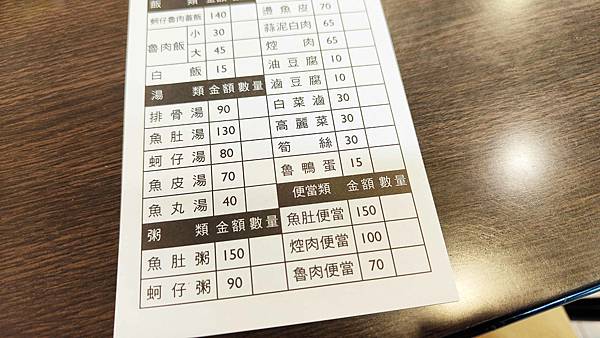 飯 類 金額 數量
蚵仔魯肉蓋飯 140
魯肉飯 小 30
大 45
白飯 15
湯類 金額 數量
排骨湯 90
魚肚湯 130
蚵仔湯 80
魚皮湯 70
魚丸湯 40
粥類 金額 數量
魚肚粥 150
蚵仔粥 90
燙魚皮 70
蒜泥白肉 65
焢肉 65
油豆腐 10
滷豆腐 10
白菜滷 30
高麗菜 30
筍絲 30
魯鴨蛋 15
便當類 金額 數量
魚肚便當 150
焢肉便當 100
魯肉便當 70